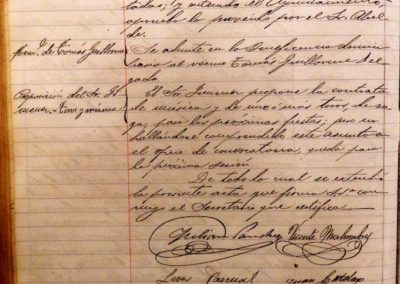 tados; y enterado el Ayuntamiento
aprueba lo proveido por el Sr. Alcal
de.
de Tomás Guillorme
Se admite en la Beneficencia domici
liaria al vecino Tomás Guillorme Del
gado.
Proposición del Sr.
toros y música
El Sr. propone la contrata
de música y de uno ó más toros, de so
ga, para las próximas fiestas; pero no
hallándose comprendido este asunto en
el oficio de convocatoria, queda para
la próxima sesión.
De todo lo cual se extenderá
la presente acta que firma S.Sª con
migo el Secretario que certifica.
Sanchez Vicente
León Pascual Juan